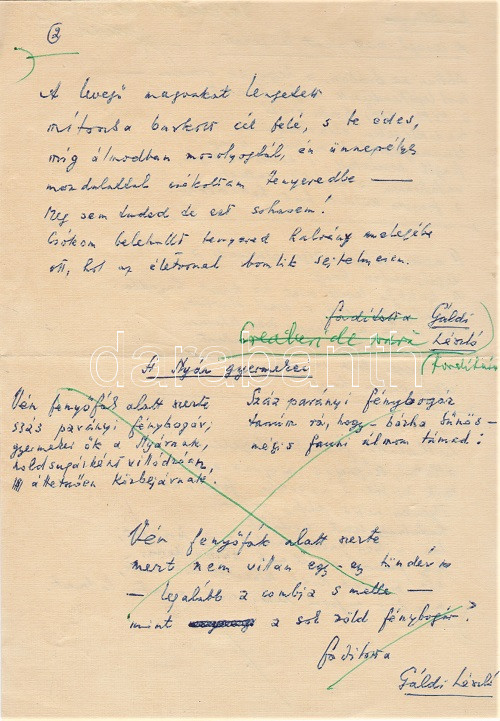 2
A levegő magvakat lengetett
mítoszba burkolt cél felé, s te édes,
míg álmodban mosolyogtál, én ünnepélyes
mozdulattal csókoltam tenyeredbe —
Meg sem tudod de ezt sohasem!
Csókom belehullt tenyered halvány melegébe
ott, hol az életvonal bomlik sejtelmesen.
fordította Gáldi
László
(fordítás)
A Nyár gyermekei
Vén fenyőfák alatt szerte
száz parányi fénybogár,
gyermekei ők a Nyárnak,
holdsugárként villódzván,
áttetszően körbejárnak.
Száz parányi fénybogár
tanúm rá, hogy - bárha bűnös -
mégis fauni álmom támad!
Vén fenyőfák alatt szerte
mért nem villan egy-egy tündér is
— legalább a combja s melle —
mint a sok zöld fénybogár?
fordította
Gáldi László
darabanth